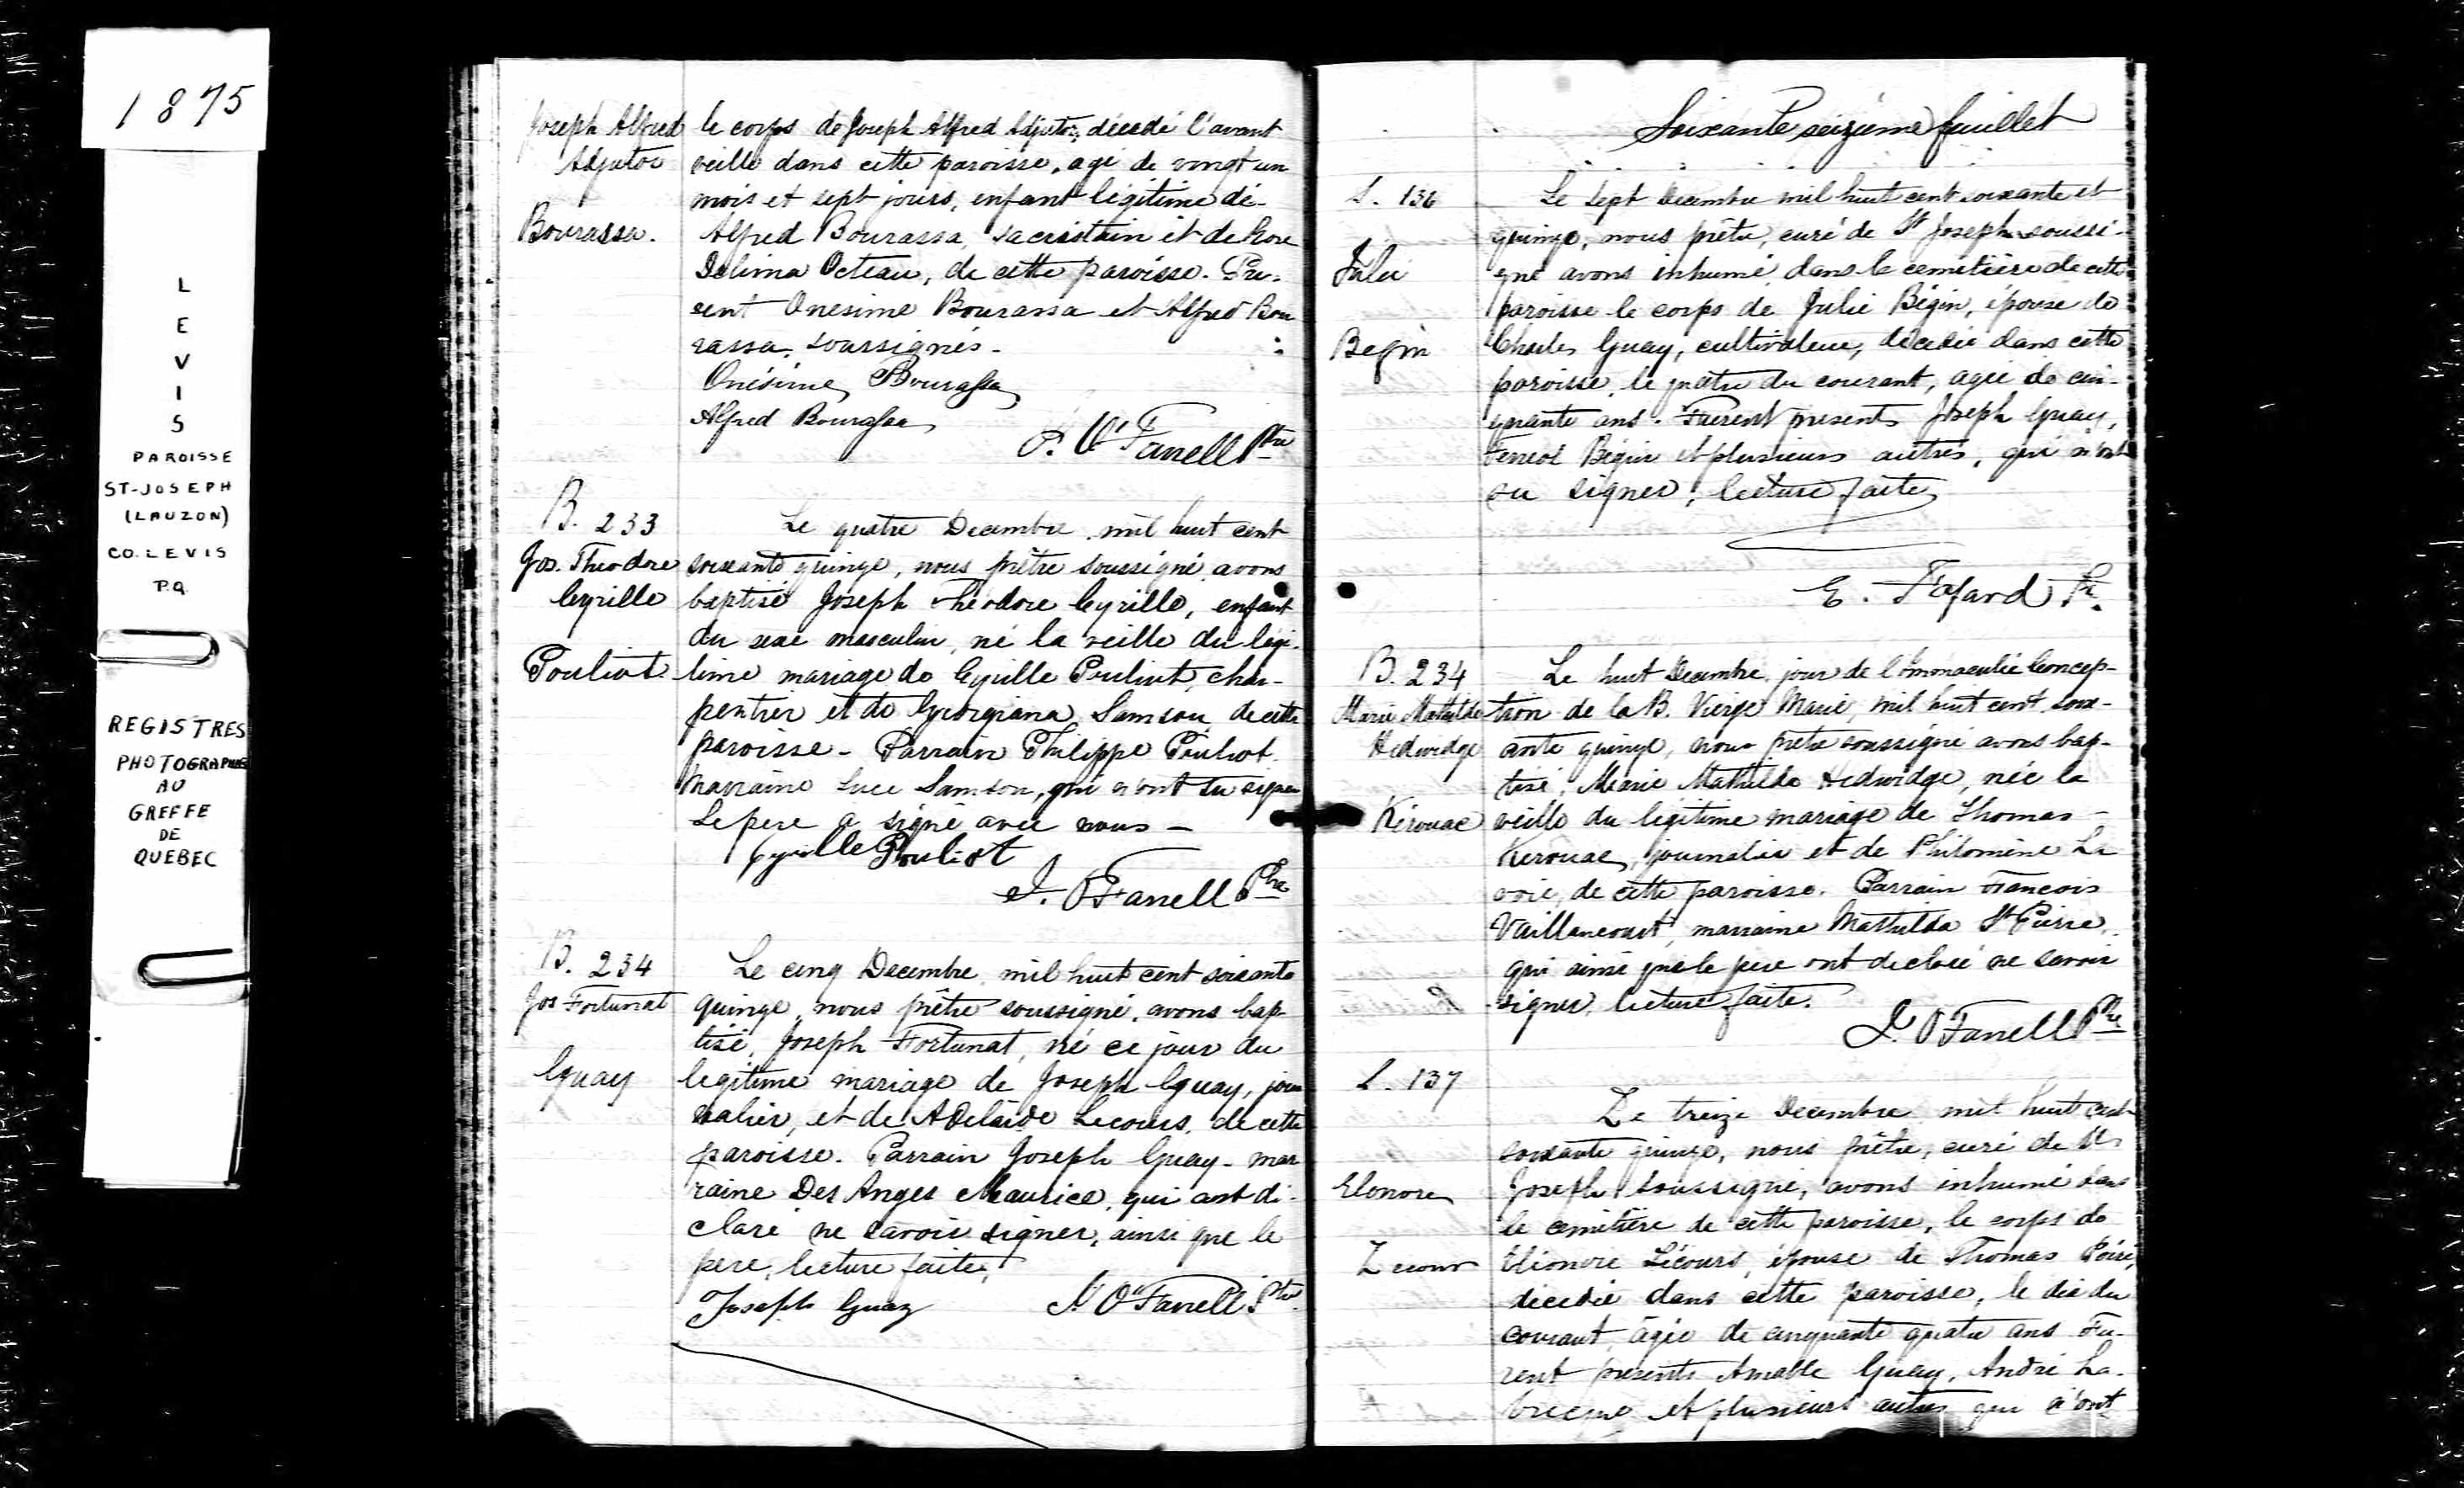 1875
L
E
V
I
S
PAROISSE
ST-JOSEPH
(LAUZON)
CO. LEVIS
P.Q.
REGISTRES
PHOTOGRAPHIES
AU
GREFFE
DE
QUEBEC
Joseph Alfred
Adjutor
Bourassa.
le corps de Joseph Alfred Adjutor, décédé l'avant
veille dans cette paroisse, agé de vingt un
mois et sept jours, enfant légitime de
Alfred Bourassa, sacristain et de
Delima Octeau, de cette paroisse. Pré-
sent Onesime Bourassa et Alfred Bou
rassa, soussignés.
Onésime Bourassa
Alfred Bourassa
O'Farrell Ptre
B. 233
Jos. Théodore
Cyrille
Pouliot
Le quatre Decembre mil huit cent
soixante quinze, nous prêtre soussigné avons
baptisé Joseph Théodore Cyrille, enfant
du sexe masculin, né la veille du légi-
time mariage de Cyrille Pouliot, char-
pentier et de Georgiana Samson de cette
paroisse - Parrain Philippe Pouliot
marraine Luce Samson, qui n'ont su signer
Le père a signé avec nous -
Cyrille Pouliot
O'Farrell Ptre
B. 234
Jos Fortunat
Guay
Le cinq Decembre mil huit cent soixante
quinze, nous prêtre soussigné, avons bap
tisé, Joseph Fortunat, né ce jour du
legitime mariage de Joseph Guay, jour
nalier, et de Adelaide Lecours, de cette
paroisse. Parrain Joseph Guay - mar
raine Des Anges Maurice, qui ont dé-
claré ne savoir signer, ainsi que le
pere, lecture faite,
Joseph Guay O'Farrell Ptre
Soixante seizième feuillet
S. 136
Julie
Begin
Le sept Decembre mil huit cent soixante et
quinze, nous prêtre, curé de St Joseph soussi-
gné avons inhumé dans le cemetière de cette
paroisse le corps de Julie Bégin, épouse de
Charles Guay, cultivateur, décédée dans cette
paroisse, le quatre du courant, agée de cin-
quante ans. Furent presents Joseph Guay,
Ferreol Bégin et plusieurs autres, qui n'ont
su signer, lecture faite,
E. Fafard Ptr.
B. 234
Marie Mathilde
Hedwidge
Kérouac
Le huit Decembre, jour de l'Immaculée Concep-
tion de la B. Vierge Marie, mil huit cent soix-
ante quinze, nous prêtre soussigné avons bap-
tisé, Marie Mathilde Hedwidge, née la
veille du légitime mariage de Thomas
Kerouac, journalier et de Philomène La
voie, de cette paroisse. Parrain François
Vaillancourt, marraine Mathilda St Pierre,
qui ainsi que le pere ont declaré ne savoir
signer, lecture faite.
O'Farrell Ptre
S. 137
Elonore
Lecours
Le treize Decembre mil huit cent
soixante quinze, nous prêtre, curé de St
Joseph soussigné, avons inhumé dans
le cimétière de cette paroisse, le corps de
Eléonore Lécours, épouse de Thomas Poiré,
décédée dans cette paroisse, le dix du
courant, âgée de cinquante quatre ans Fu-
rent présents Amable Guay, André La-
brecque et plusieurs autres qui n'ont